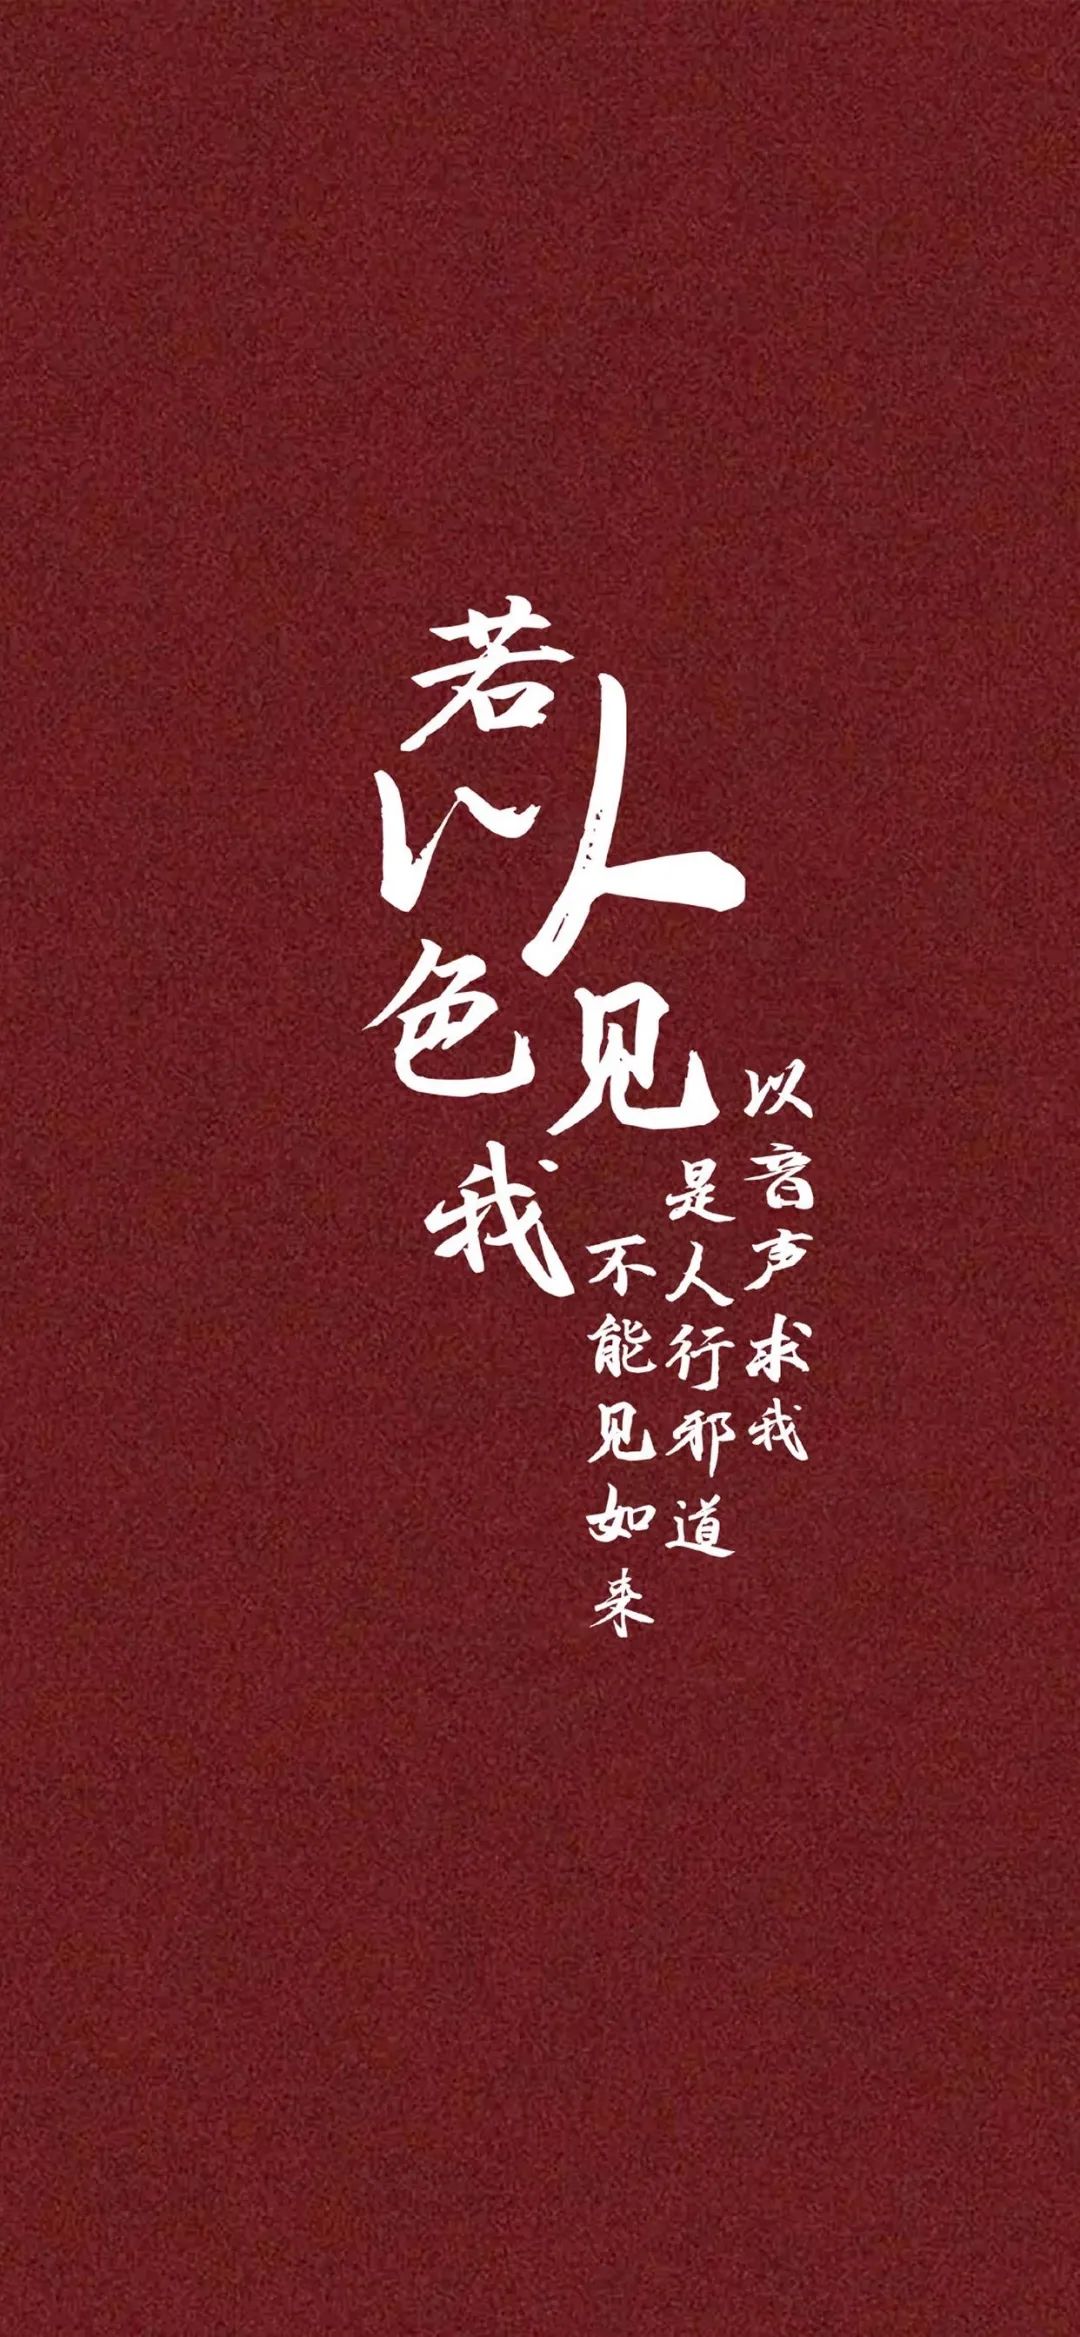 若人以色见我
以音声求我
是人行邪道
不能见如来